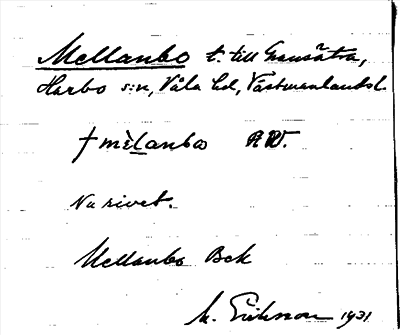 Mellanbo t. till Gransätra,
Harbo s:n, Våla hd, Västmanlandsl.
† mèlanbo
Nu rivet.
Mellanbo Bek
M. Eriksson 1931